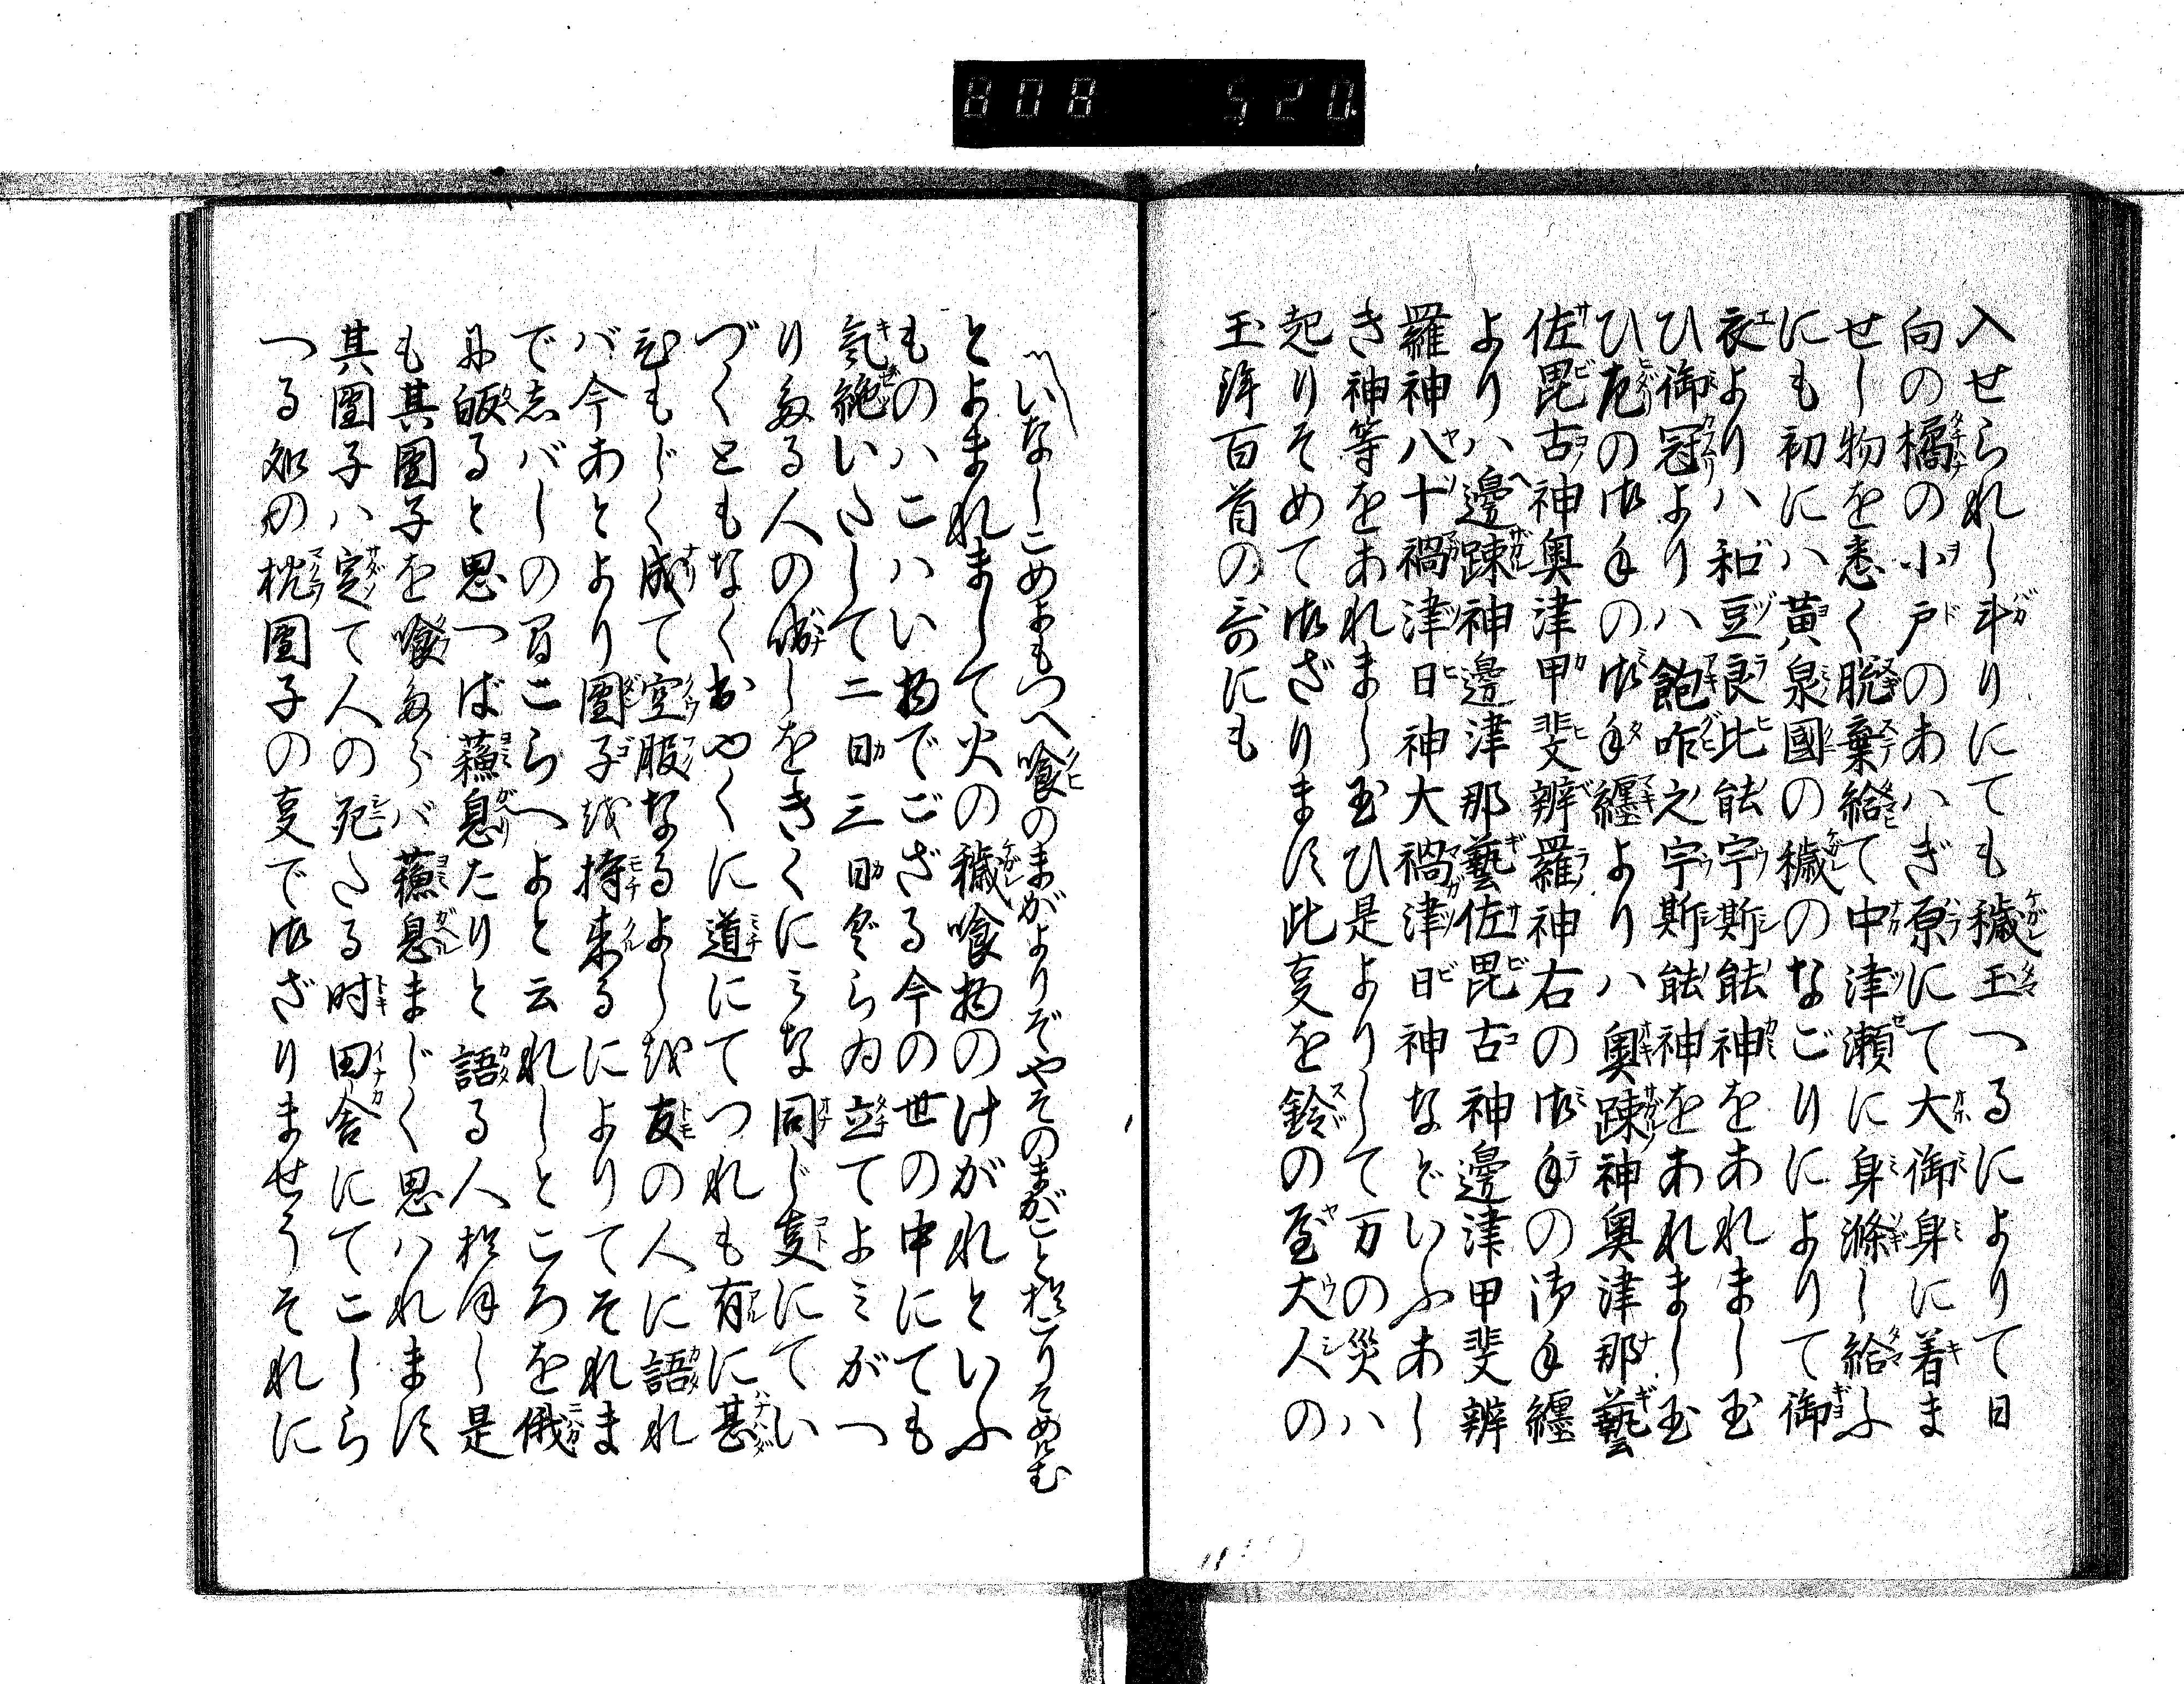 808 520
入せられし斗りにても穢玉へるによりて日
向の橘の小戸のあハぎ原にて大御身に着ま
せし物を悉く脱棄給て中津瀬に身滌し給ふ
にも初にハ黄泉國の穢のなごりによりて御
衣よりハ和豆良比能宇斯能神をあれまし玉
ひ御冠よりハ飽咋之宇斯能神をあれまし玉
ひ左の御手の御手纏よりハ奥踈神奥津那藝
佐毘古神奥津甲斐辨羅神右の御手の御手纏
よりハ邊踈神邊津那藝佐毘古神邊津甲斐辨
羅神八十禍津日神大禍津日神などいふあし
き神等をあれまし玉ひ是よりして万の災ハ
起りそめて御ざりま須此㕝を鈴の屋大人の
玉鉾百首の哥にも
いなしこめよもつへ喰のまがよりぞやそのまがこと於こりそめけむ
とよまれまして火の穢喰物のけがれといふ
ものハこハい物でござる今の世の中にても
気絶いたして二日三日ぐらゐ立てよミがつ
り多る人の咄しをきくにミな同じ㕝にてい
づくともなくおやくに道にてつれも有に甚
ひもじく成て空腹なるよし越友の人に語れ
バ今あとより團子越持来るによりてそれま
で志バしの間こらへよと云れしところを俄
に皈ると思つば蘓息たりと語る人於ほし是
も其團子を喰多らバ蘓息まじく思ハれま須
其團子ハ定て人の死たる时田舎にてこしら
つる処の枕團子の㕝で御ざりませうそれに